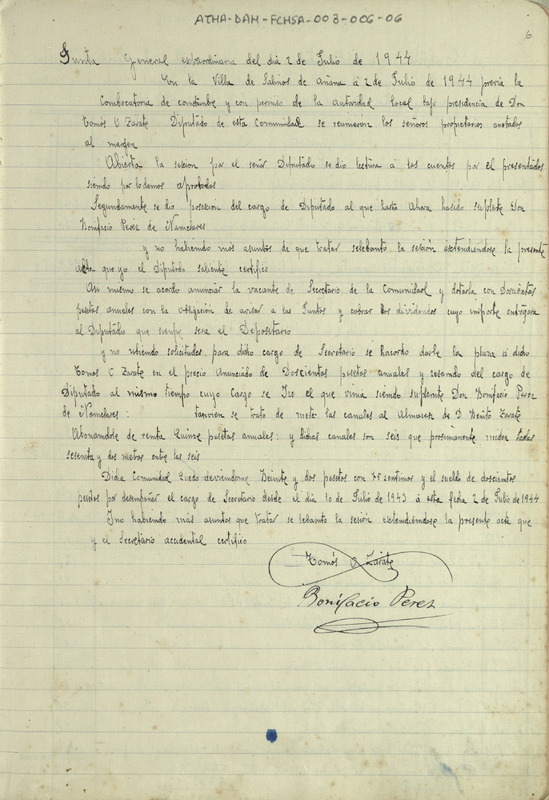 ATHA-DAH-FCHSA-003-006-06
6
Junta General extraordinaria del dia 2 de Julio de 1944
En la Villa de Salinas de Añana á 2 de Julio de 1944 previa la
Combocatoria de constumbre y con permiso de la autoridad local bajo presidencia de Don
Tomás O Zarate Diputado de esta Comunidad se reunieron los señores propietarios anotados
al margen
Abierta la sesion por el señor Diputado se dio lectura a las cuentas por el presentadas
siendo por todos aprobadas
Segundamente se dio posesion del cargo de Diputado al que hasta Ahora habido suplente Don
Bonifacio Perez de Nanclares
y no habiendo mas asuntos de que tratar se lebanto la sesión extendiendose la presente
Acta que yo el Diputado saliente certifico
Asi mismo se acordo anunciar la vacante de Secretario de la Comunidad y dotarla con Doscientas
pesetas anuales con la obligacion de avisar a las Juntas y cobrar los dividendos cuyo importe entregara
al Diputado que siempre sera el Depositario
y no habiendo solicitudes para dicho cargo de Secretario se acordo darle la plaza á dicho
Tomas O Zarate en el precio Anunciado de Doscientas pesetas anuales y cesando del cargo de
Diputado al mismo tiempo cuyo cargo se el que venia siendo suplente Don Bonifacio Perez
de Nanclares: tambien se trato de meter las canales al Almacen de D Benito Zarate
Abonandole de renta Quince pesetas anuales: y dichas canales son seis que prosimamente miden todas
sesenta y dos metros entre las seis
Dicha Comunidad quedo deviendome Beinte y dos pesetas con 75 sentimos y el sueldo de doscientas
pesetas por desempeñar el cargo de Secretario desde el dia 10 de Julio de 1943 á esta fecha 2 de Julio de 1944
Y no habiendo más asuntos que tratar se lebanto la sesión extendiéndose la presente acta que
y el Secretario accidental certifico
Tomás O. Zarate
Bonifacio Perez